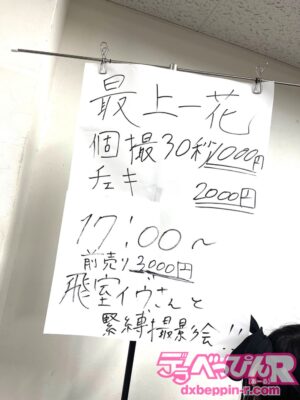 最上一花
個撮30秒1000円
チェキ 2000円
17:00~
前売り3,000円
飛室イヴさんと
緊縛撮影会!!
デラべっぴんR
dxbeppin-r.com